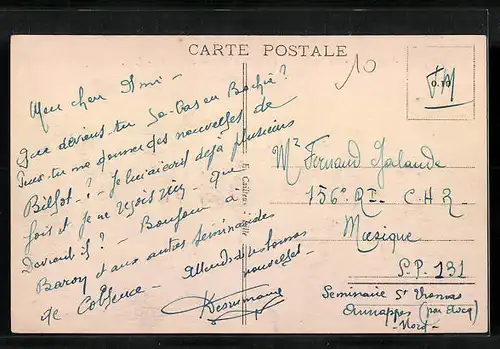 CARTE POSTALE
10
F.M
Mon cher Ami -
Que deviens-tu là-bas en Bochie?
Peux-tu me donner des nouvelles de
Bilfot - ? - Je lui ai écrit déjà plusieurs
fois et je ne reçois rien que
devient-il? - Bonjour à
Baroy et aux autres séminaristes
de Coblence - Attends de tes bonnes
nouvelles -
Mr Fernand Jalande
156e R.I. - C H R
Musique
S.P. 131
Seminaire St Thomas
Annappes (par Ascq)
- Nord -